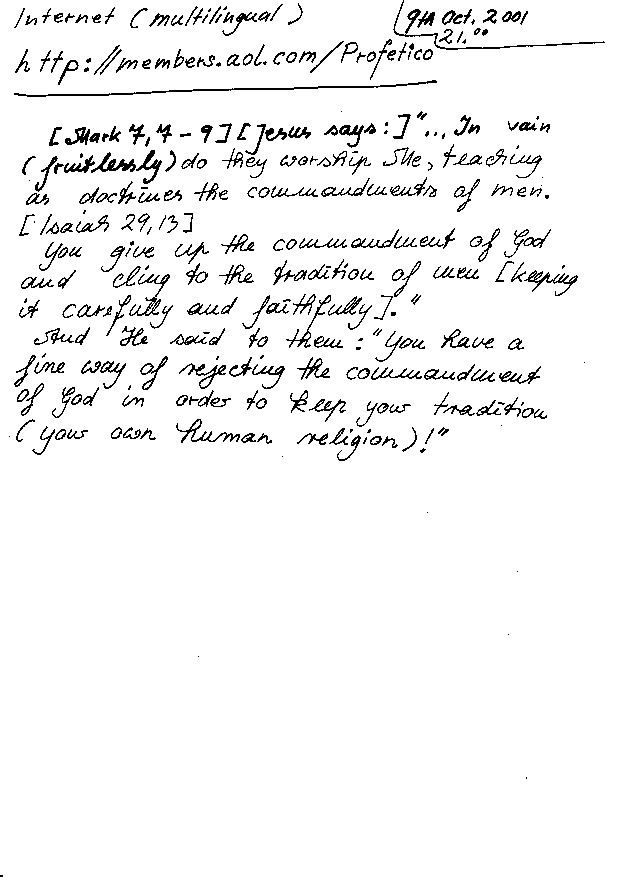 Internet (multilingual)
9th Oct. 2001
21.⁰⁰
http://members.aol.com/Profetico
[Mark 7,7-9] [Jesus says:] "... In vain
(fruitlessly) do they worship Me, teaching
as doctrines the commandments of men.
[Isaiah 29,13]
You give up the commandment of God
and cling to the tradition of men [keeping
it carefully and faithfully]."
And He said to them: "You have a
fine way of rejecting the commandment
of God in order to keep your tradition
(your own human religion)!"